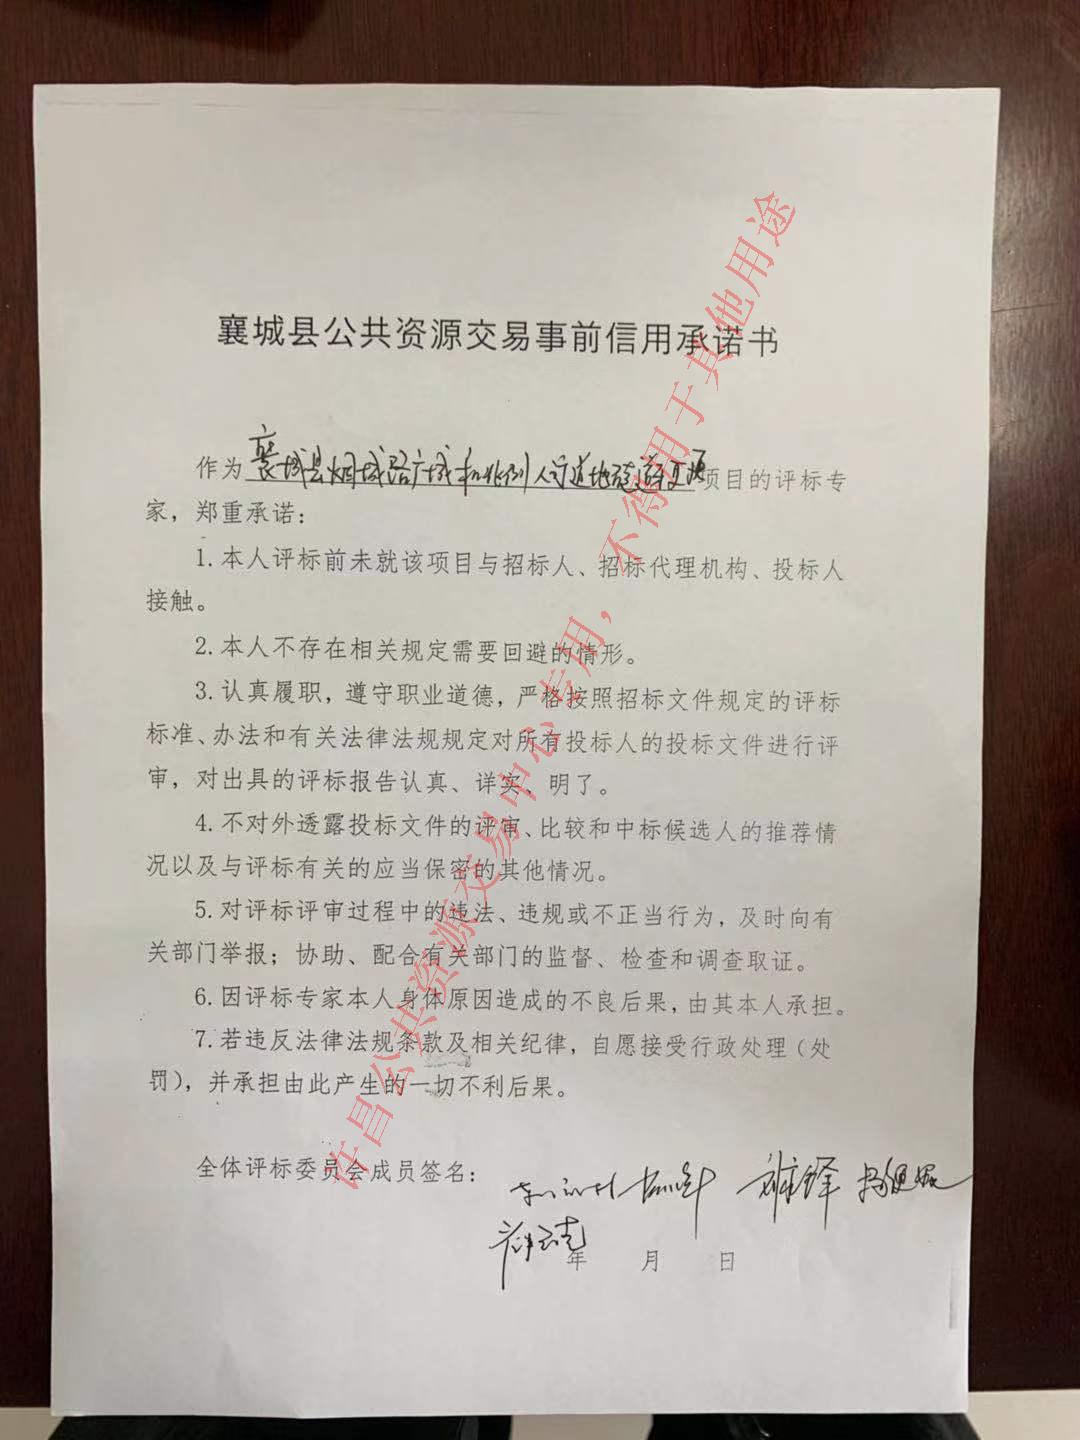 襄城县公共资源交易事前信用承诺书
作为襄城县烟城路广城和北侧人行道地砖项目的评标专
家，郑重承诺：
1.本人评标前未就该项目与招标人、招标代理机构、投标人
接触。
2.本人不存在相关规定需要回避的情形。
3.认真履职，遵守职业道德，严格按照招标文件规定的评标
标准、办法和有关法律法规规定对所有投标人的投标文件进行评
审，对出具的评标报告认真、详实、明了。
4.不对外透露投标文件的评审、比较和中标候选人的推荐情
况以及与评标有关的应当保密的其他情况。
5.对评标评审过程中的违法、违规或不正当行为，及时向有
关部门举报；协助、配合有关部门的监督、检查和调查取证。
6.因评标专家本人身体原因造成的不良后果，由其本人承担。
7.若违反法律法规条款及相关纪律，自愿接受行政处理（处
罚），并承担由此产生的一切不利后果。
全体评标委员会成员签名：
年 月 日
许昌公共资源交易中心专用，不得用于其他用途